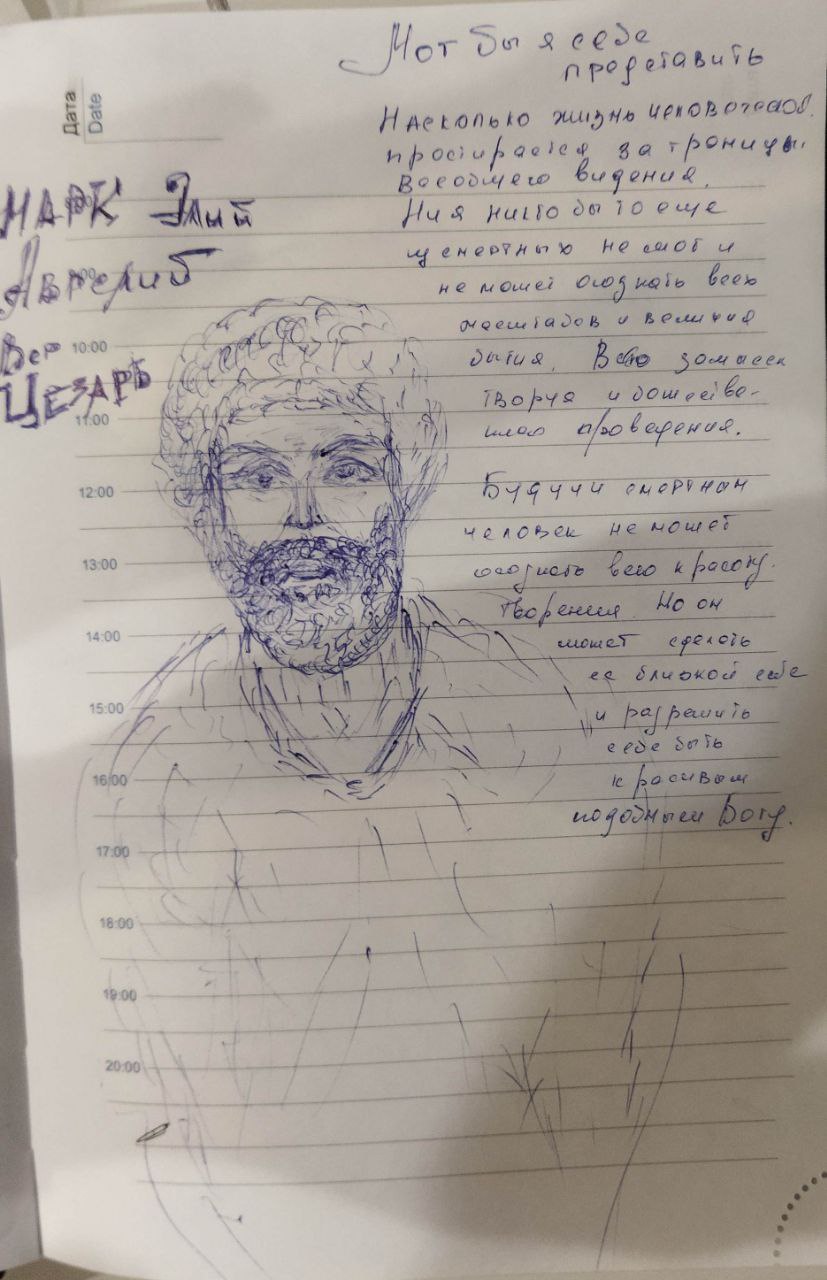 Дата
Date
Мог бы я себе
представить
Насколько жизнь человеческая
простирается за границы
всеобщего видения.
Ни я никто бы то еще
смертных не смог и
не может осознать всех
масштабов и величия
бытия. Всю замысел
творца и божестве-
нного проведения.
Будучи смертным
человек не может
осознать всю красоту
творения. Но он
может сделать
ее близкой себе
и разрешить
себе быть
красивым
подобным Богу.
МАРК Элий
Аврелий
Вер
ЦЕЗАРЬ
10:00
11:00
12:00
13:00
14:00
15:00
16:00
17:00
18:00
19:00
20:00